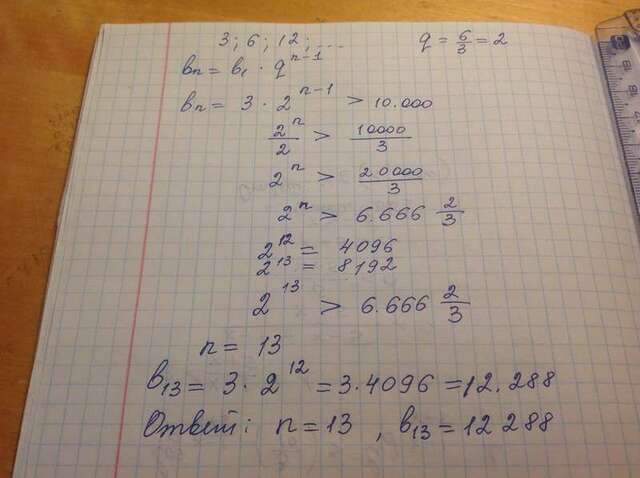 3; 6; 12; ... q = 6/3 = 2
bn = b1 · q^n-1
bn = 3 · 2^n-1 > 10.000
2^n/2 > 10000/3
2^n > 20000/3
2^n > 6.666 2/3
2^12 = 4096
2^13 = 8192
2^13 > 6.666 2/3
n = 13
b13 = 3 · 2^12 = 3 · 4096 = 12.288
Ответ: n = 13, b13 = 12 288